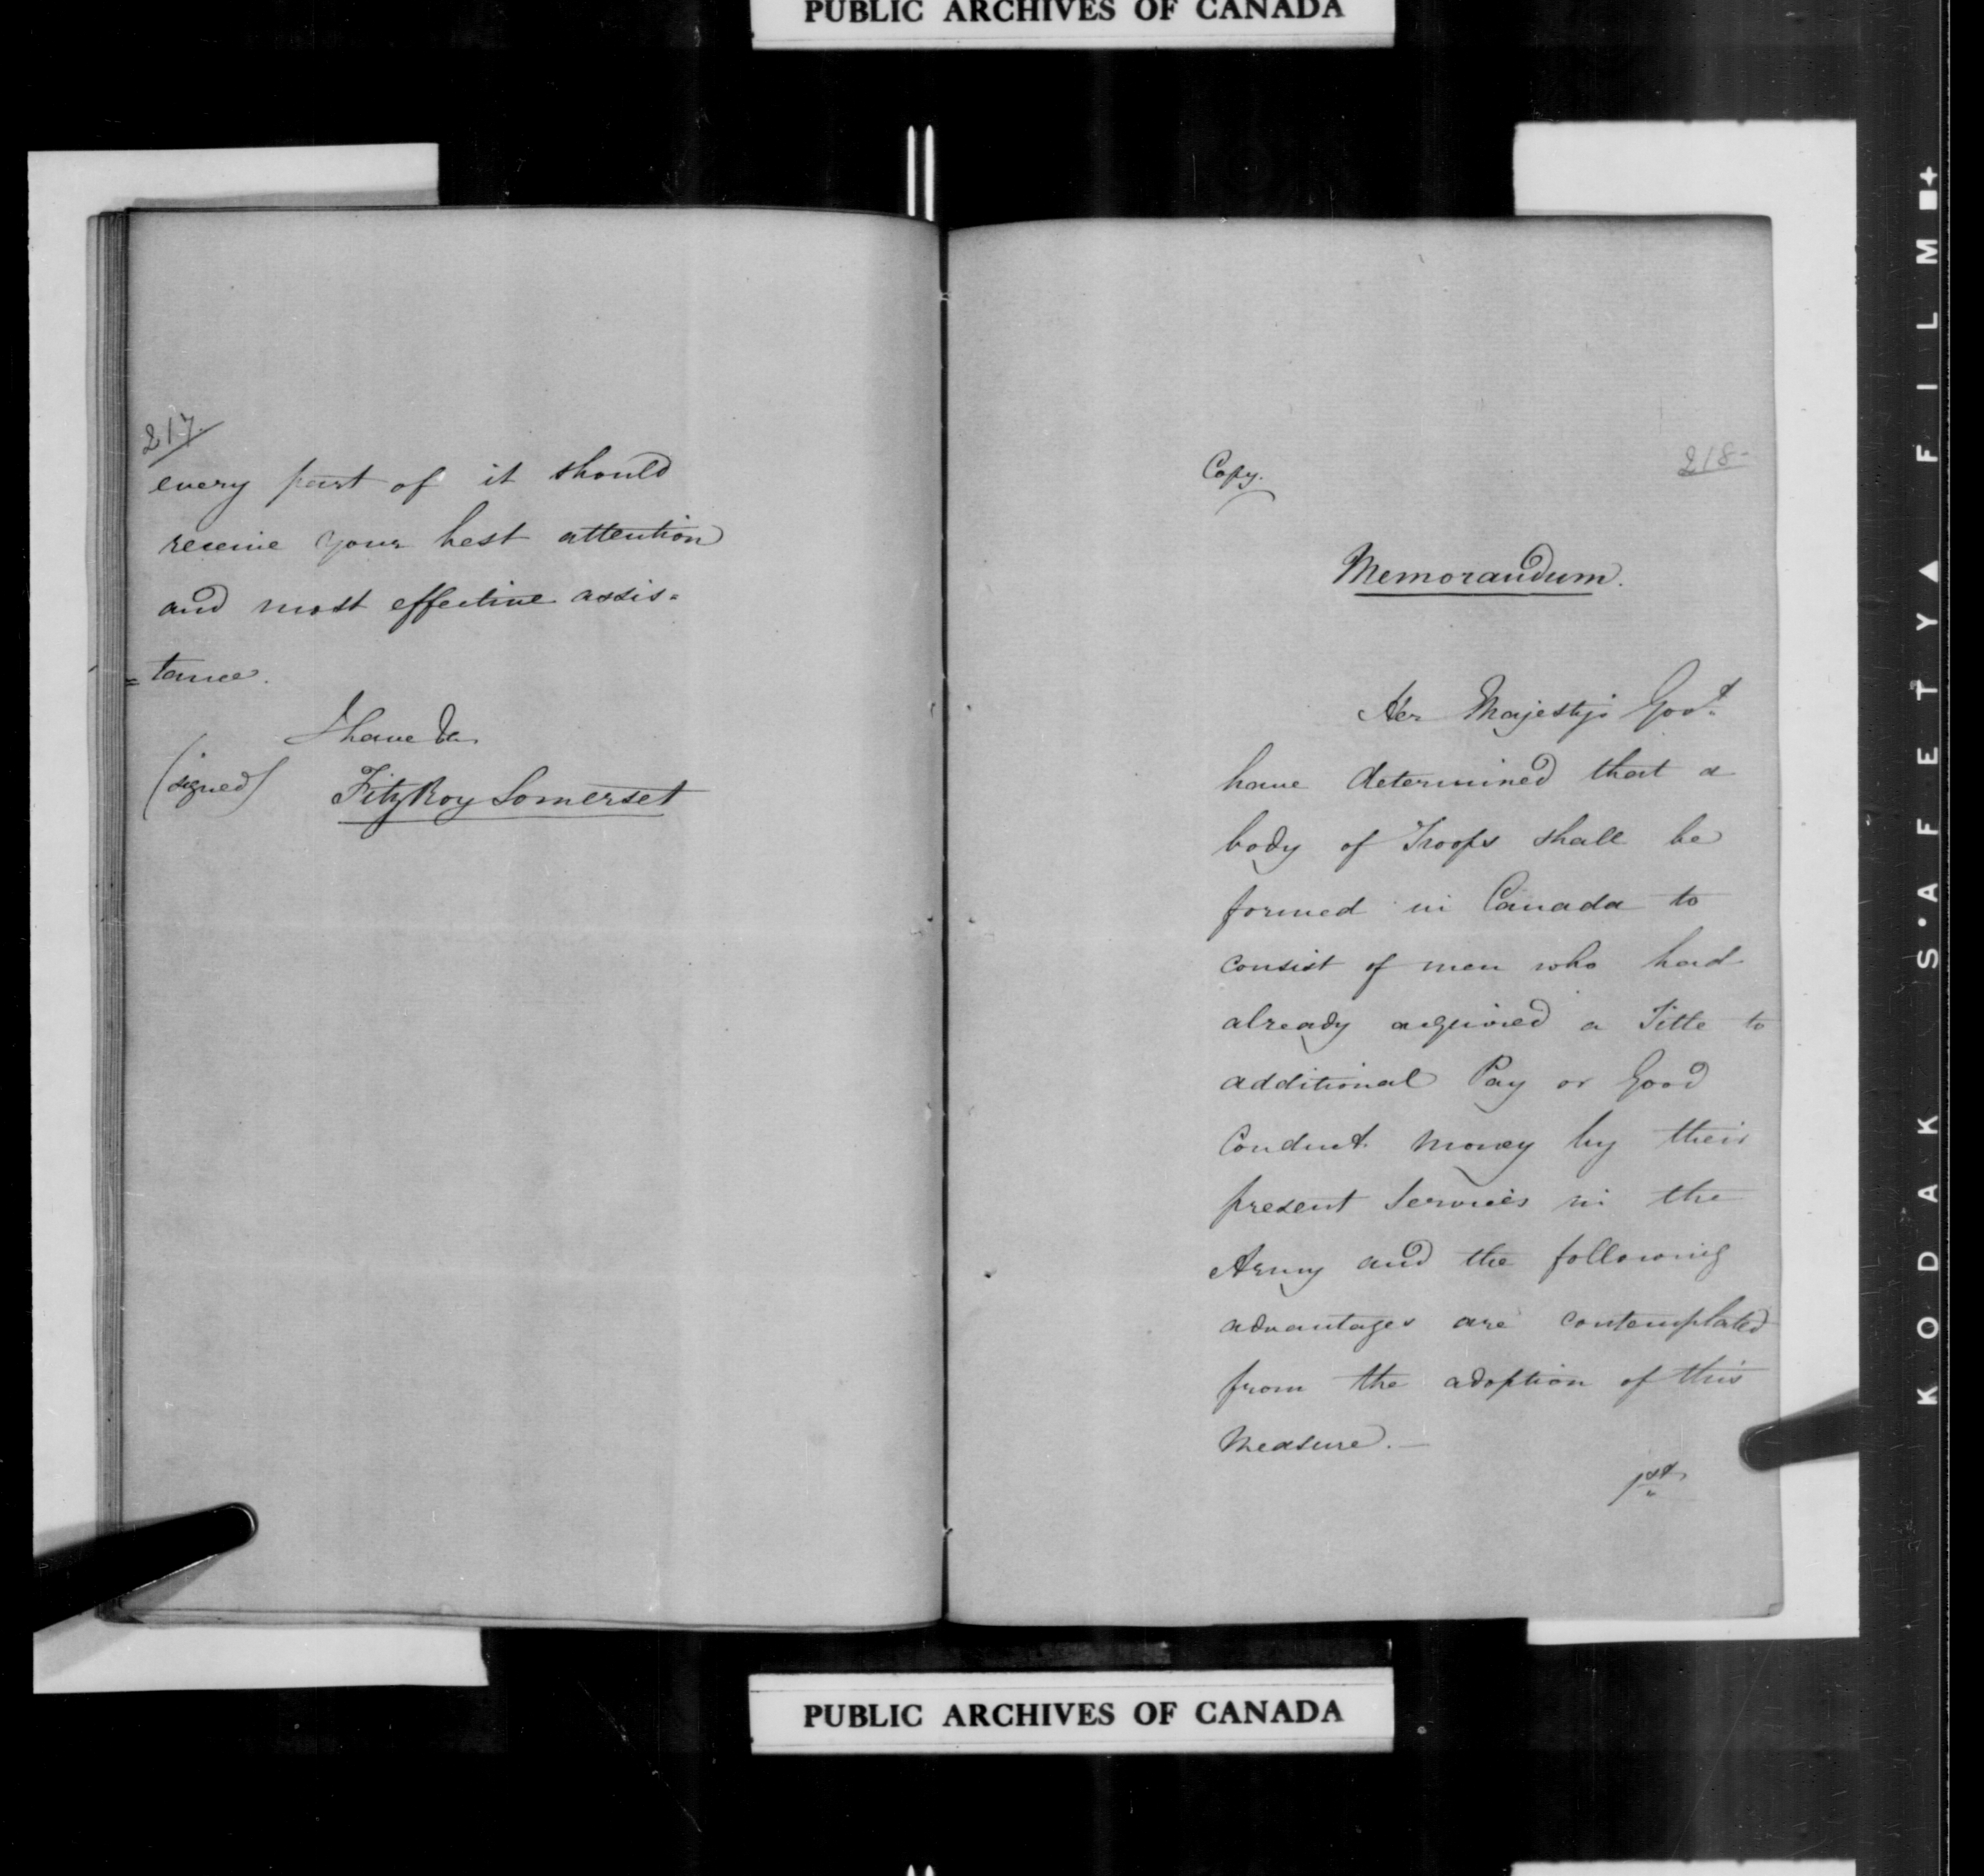 PUBLIC ARCHIVES OF CANADA
217.
every part of it should
receive your best attention
and most effective assis=
=tance.
I have &c.
(signed) FitzRoy Somerset
218-
Copy.
Memorandum.
Her Majesty's Govt.
have determined that a
body of Troops shall be
formed in Canada to
consist of men who had
already acquired a Title to
additional Pay or Good
Conduct Money by their
present Services in the
Army and the following
advantages are contemplated
from the adoption of this
Measure.—
1st.
PUBLIC ARCHIVES OF CANADA
KODAK S'AFETY▲FILM■+